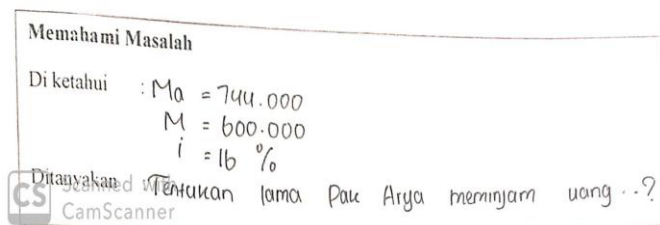 Memahami Masalah
Di ketahui : Ma = 744.000
M = 600.000
i = 16 %
Ditanyakan Tentukan lama Pak Arya meminjam uang ..?
CS Scanned with
CamScanner